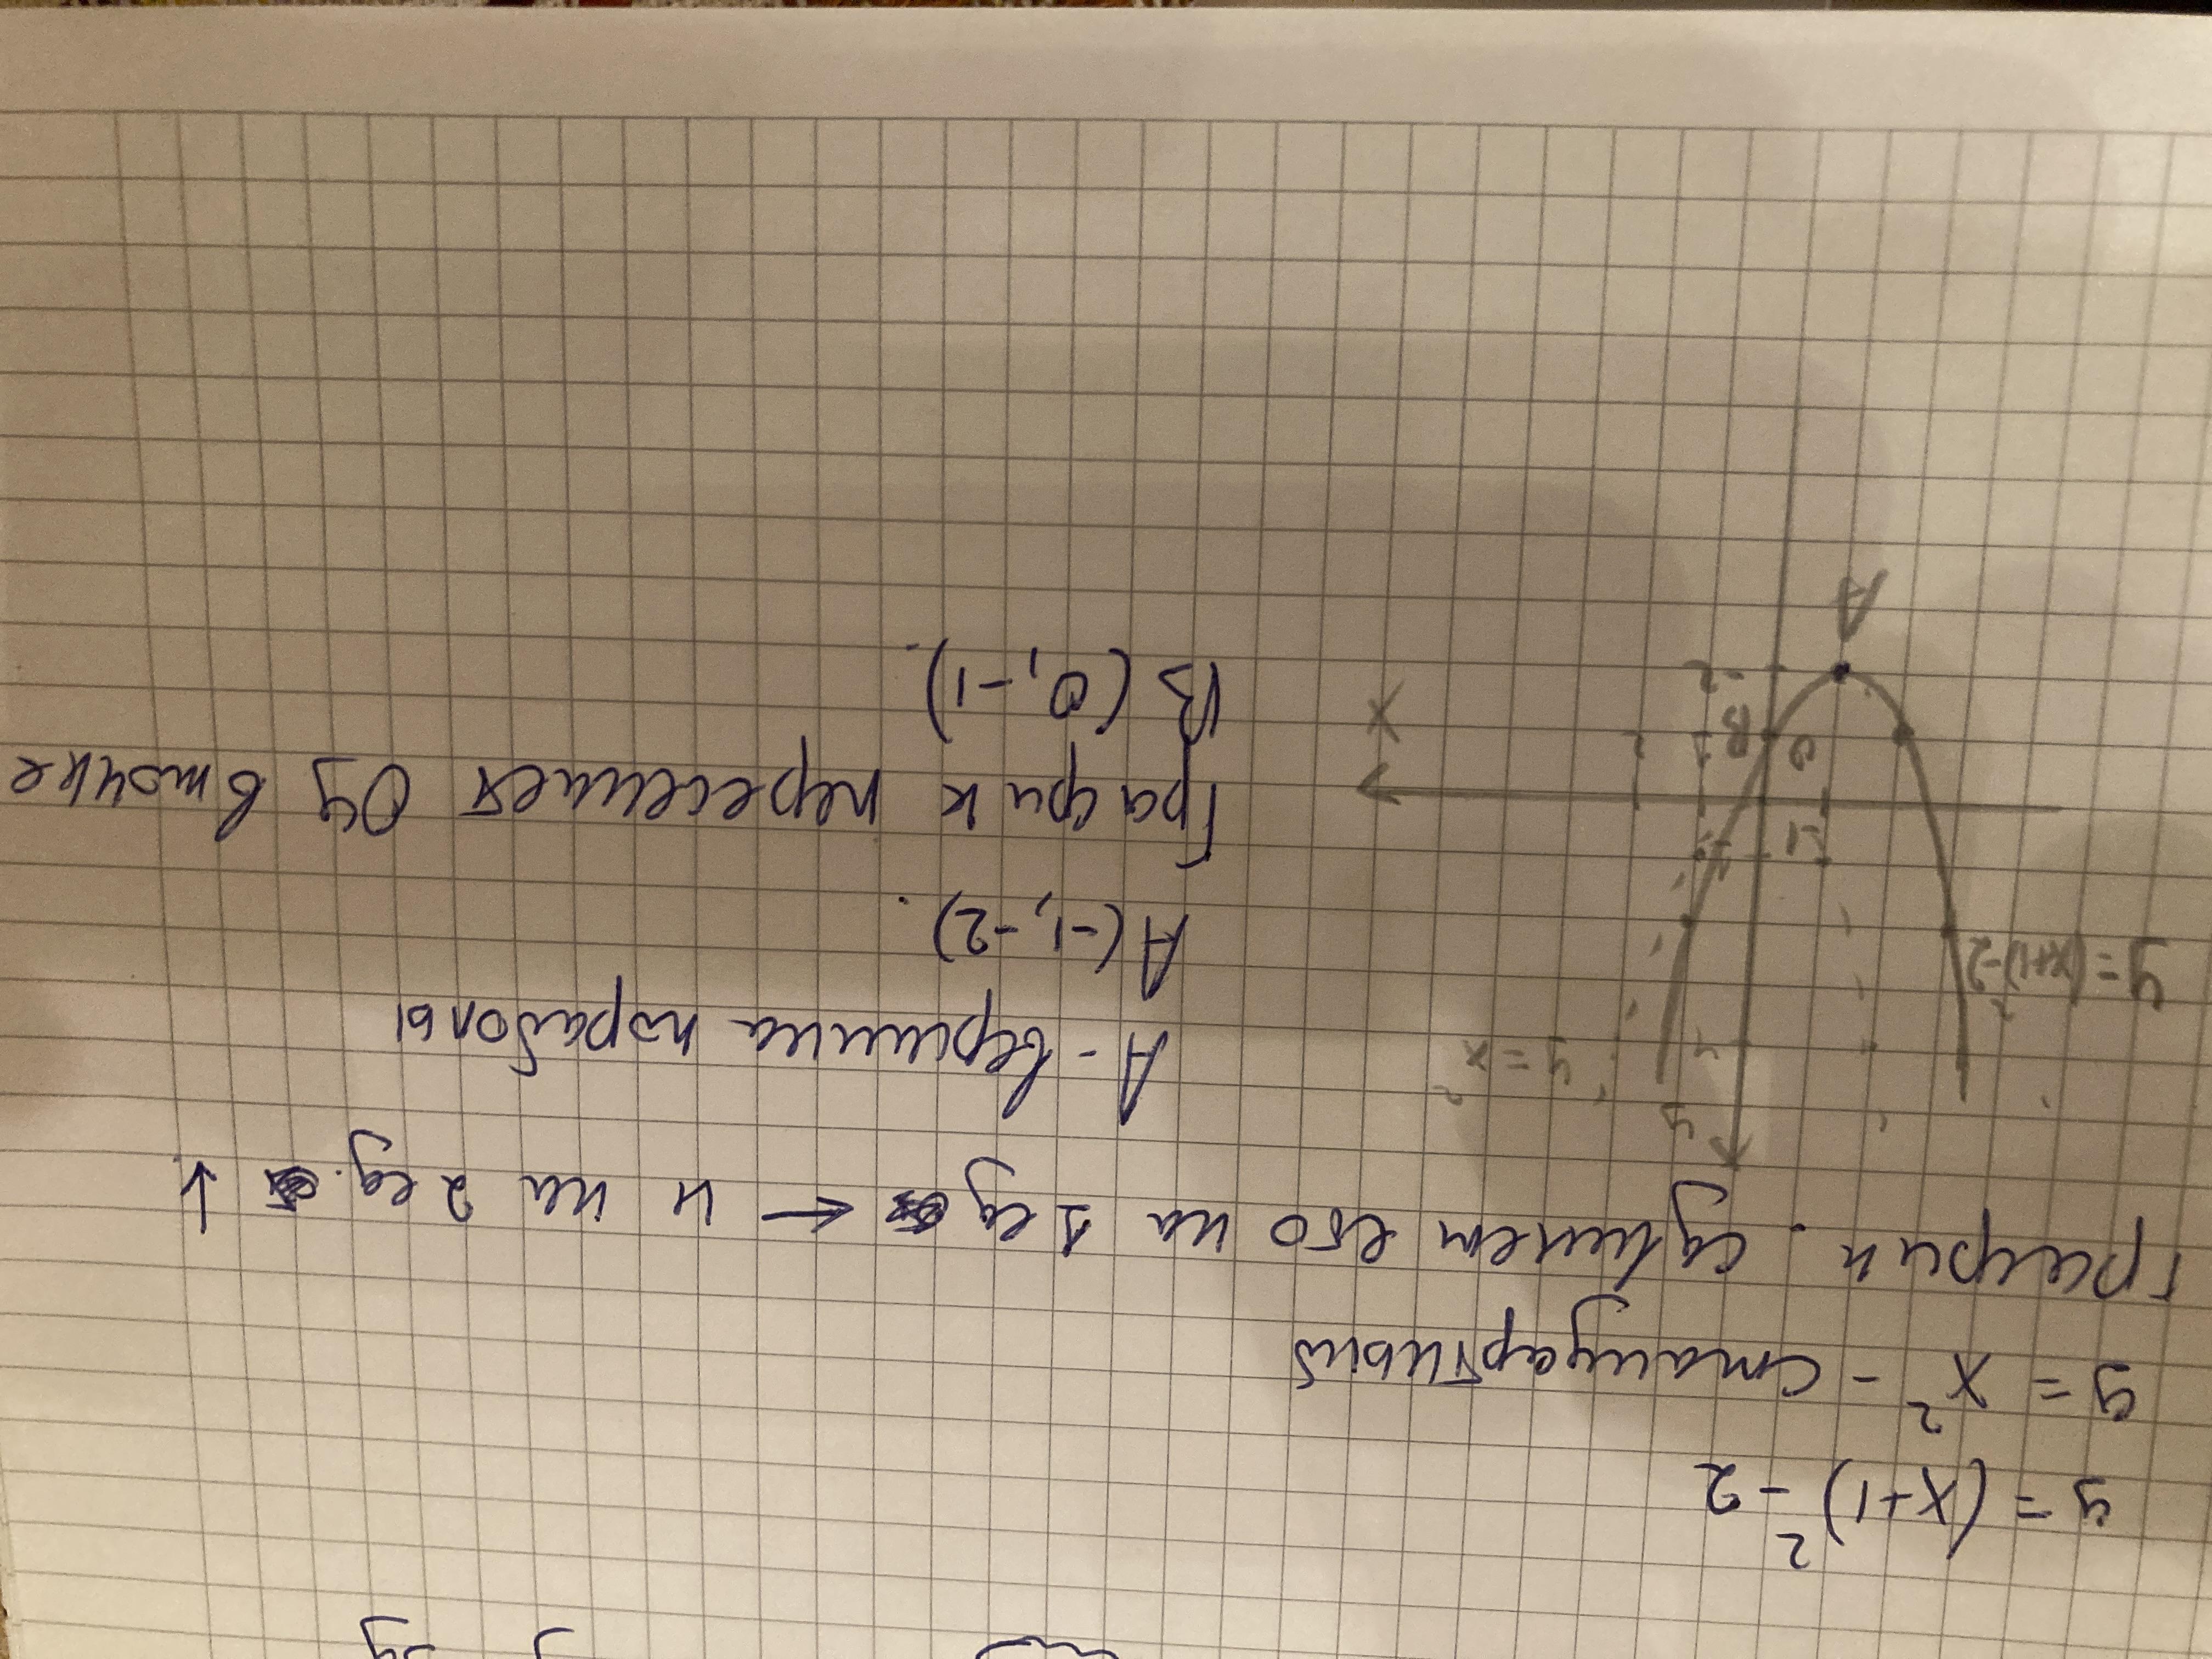 y = (x+1)² - 2
y = x² - стандартный
график. сдвинем его на 1 ед ← и на 2 ед. ↓
A - вершина параболы
A(-1, -2).
График пересекает Oy в точке
B(0, -1).
y
y = x²
4
y = (x+1)² - 2
-1
1
0
1
2
x
B
-2
A